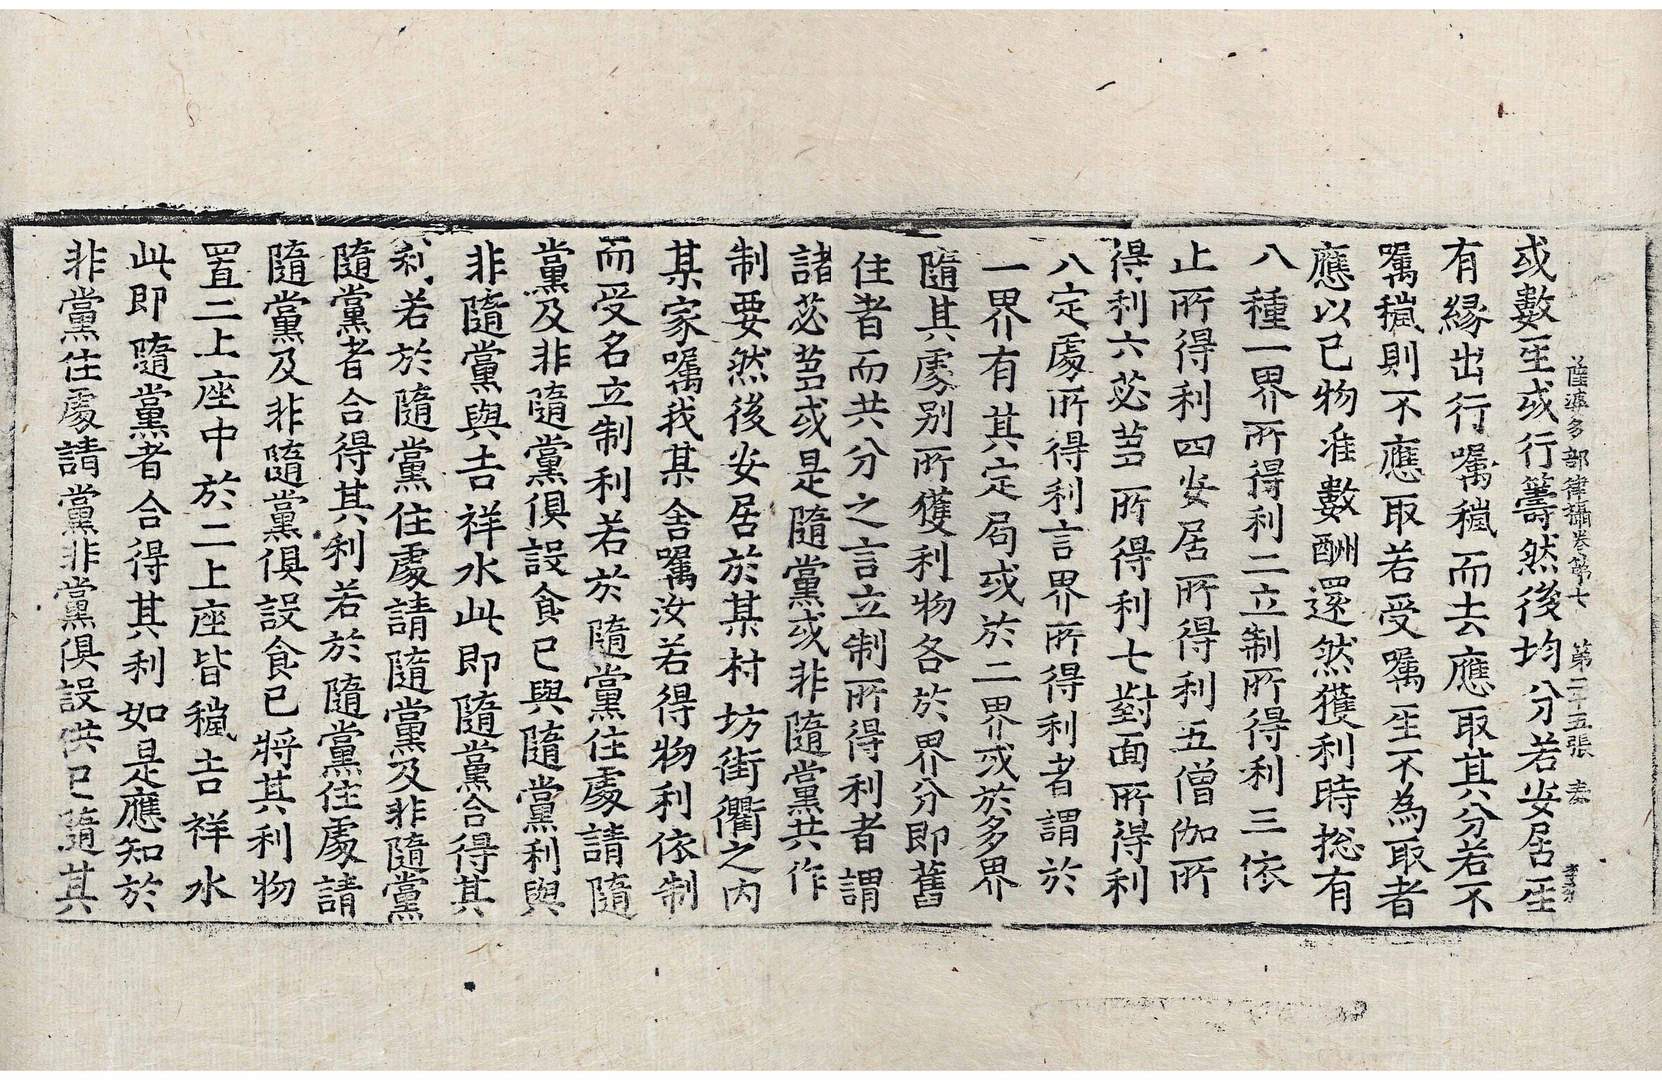 薩婆多部律攝卷第七 第二十五張
或數𤯔或行籌然後均分若安居𤯔
有緣出行囑𥠢而去應取其分若不
囑𥠢則不應取若受囑𤯔不為取者
應以已物准數酬還然獲利時揔有
八種一界所得利二立制所得利三依
止所得利四安居所得利五僧伽所
得利六苾芻所得利七對面所得利
八定處所得利言界所得利者謂於
一界有其定局或於二界或於多界
隨其處別所獲利物各於界分即舊
住者而共分之言立制所得利者謂
諸苾芻或是隨黨或非隨黨共作
制要然後安居於某村坊街衢之内
某家囑我某舍囑汝若得物利依制
而受名立制利若於隨黨住處請隨
黨及非隨黨俱設食已與隨黨利與
非隨黨與吉祥水此即隨黨合得其
利若於隨黨住處請隨黨及非隨黨
隨黨者合得其利若於隨黨住處請
隨黨及非隨黨俱設食已將其利物
置二上座中於二上座皆𥠢吉祥水
此即隨黨者合得其利如是應知於
非黨住處請黨非黨俱設供已隨其